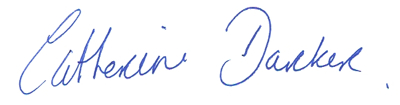 Catherine Darker.